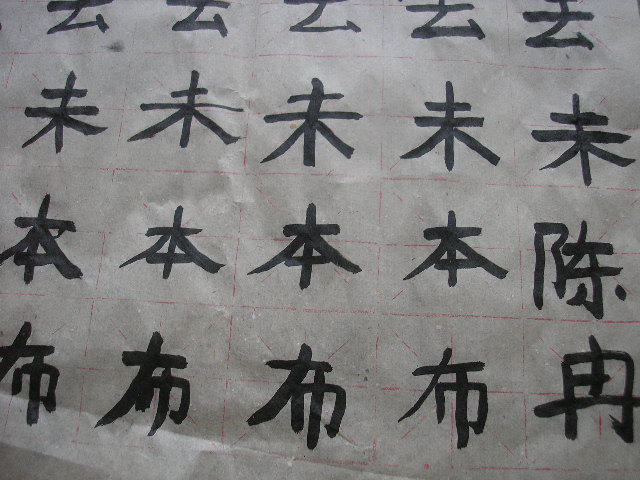 去去去去去
未未未未未
本本本本陈
布布布布冉